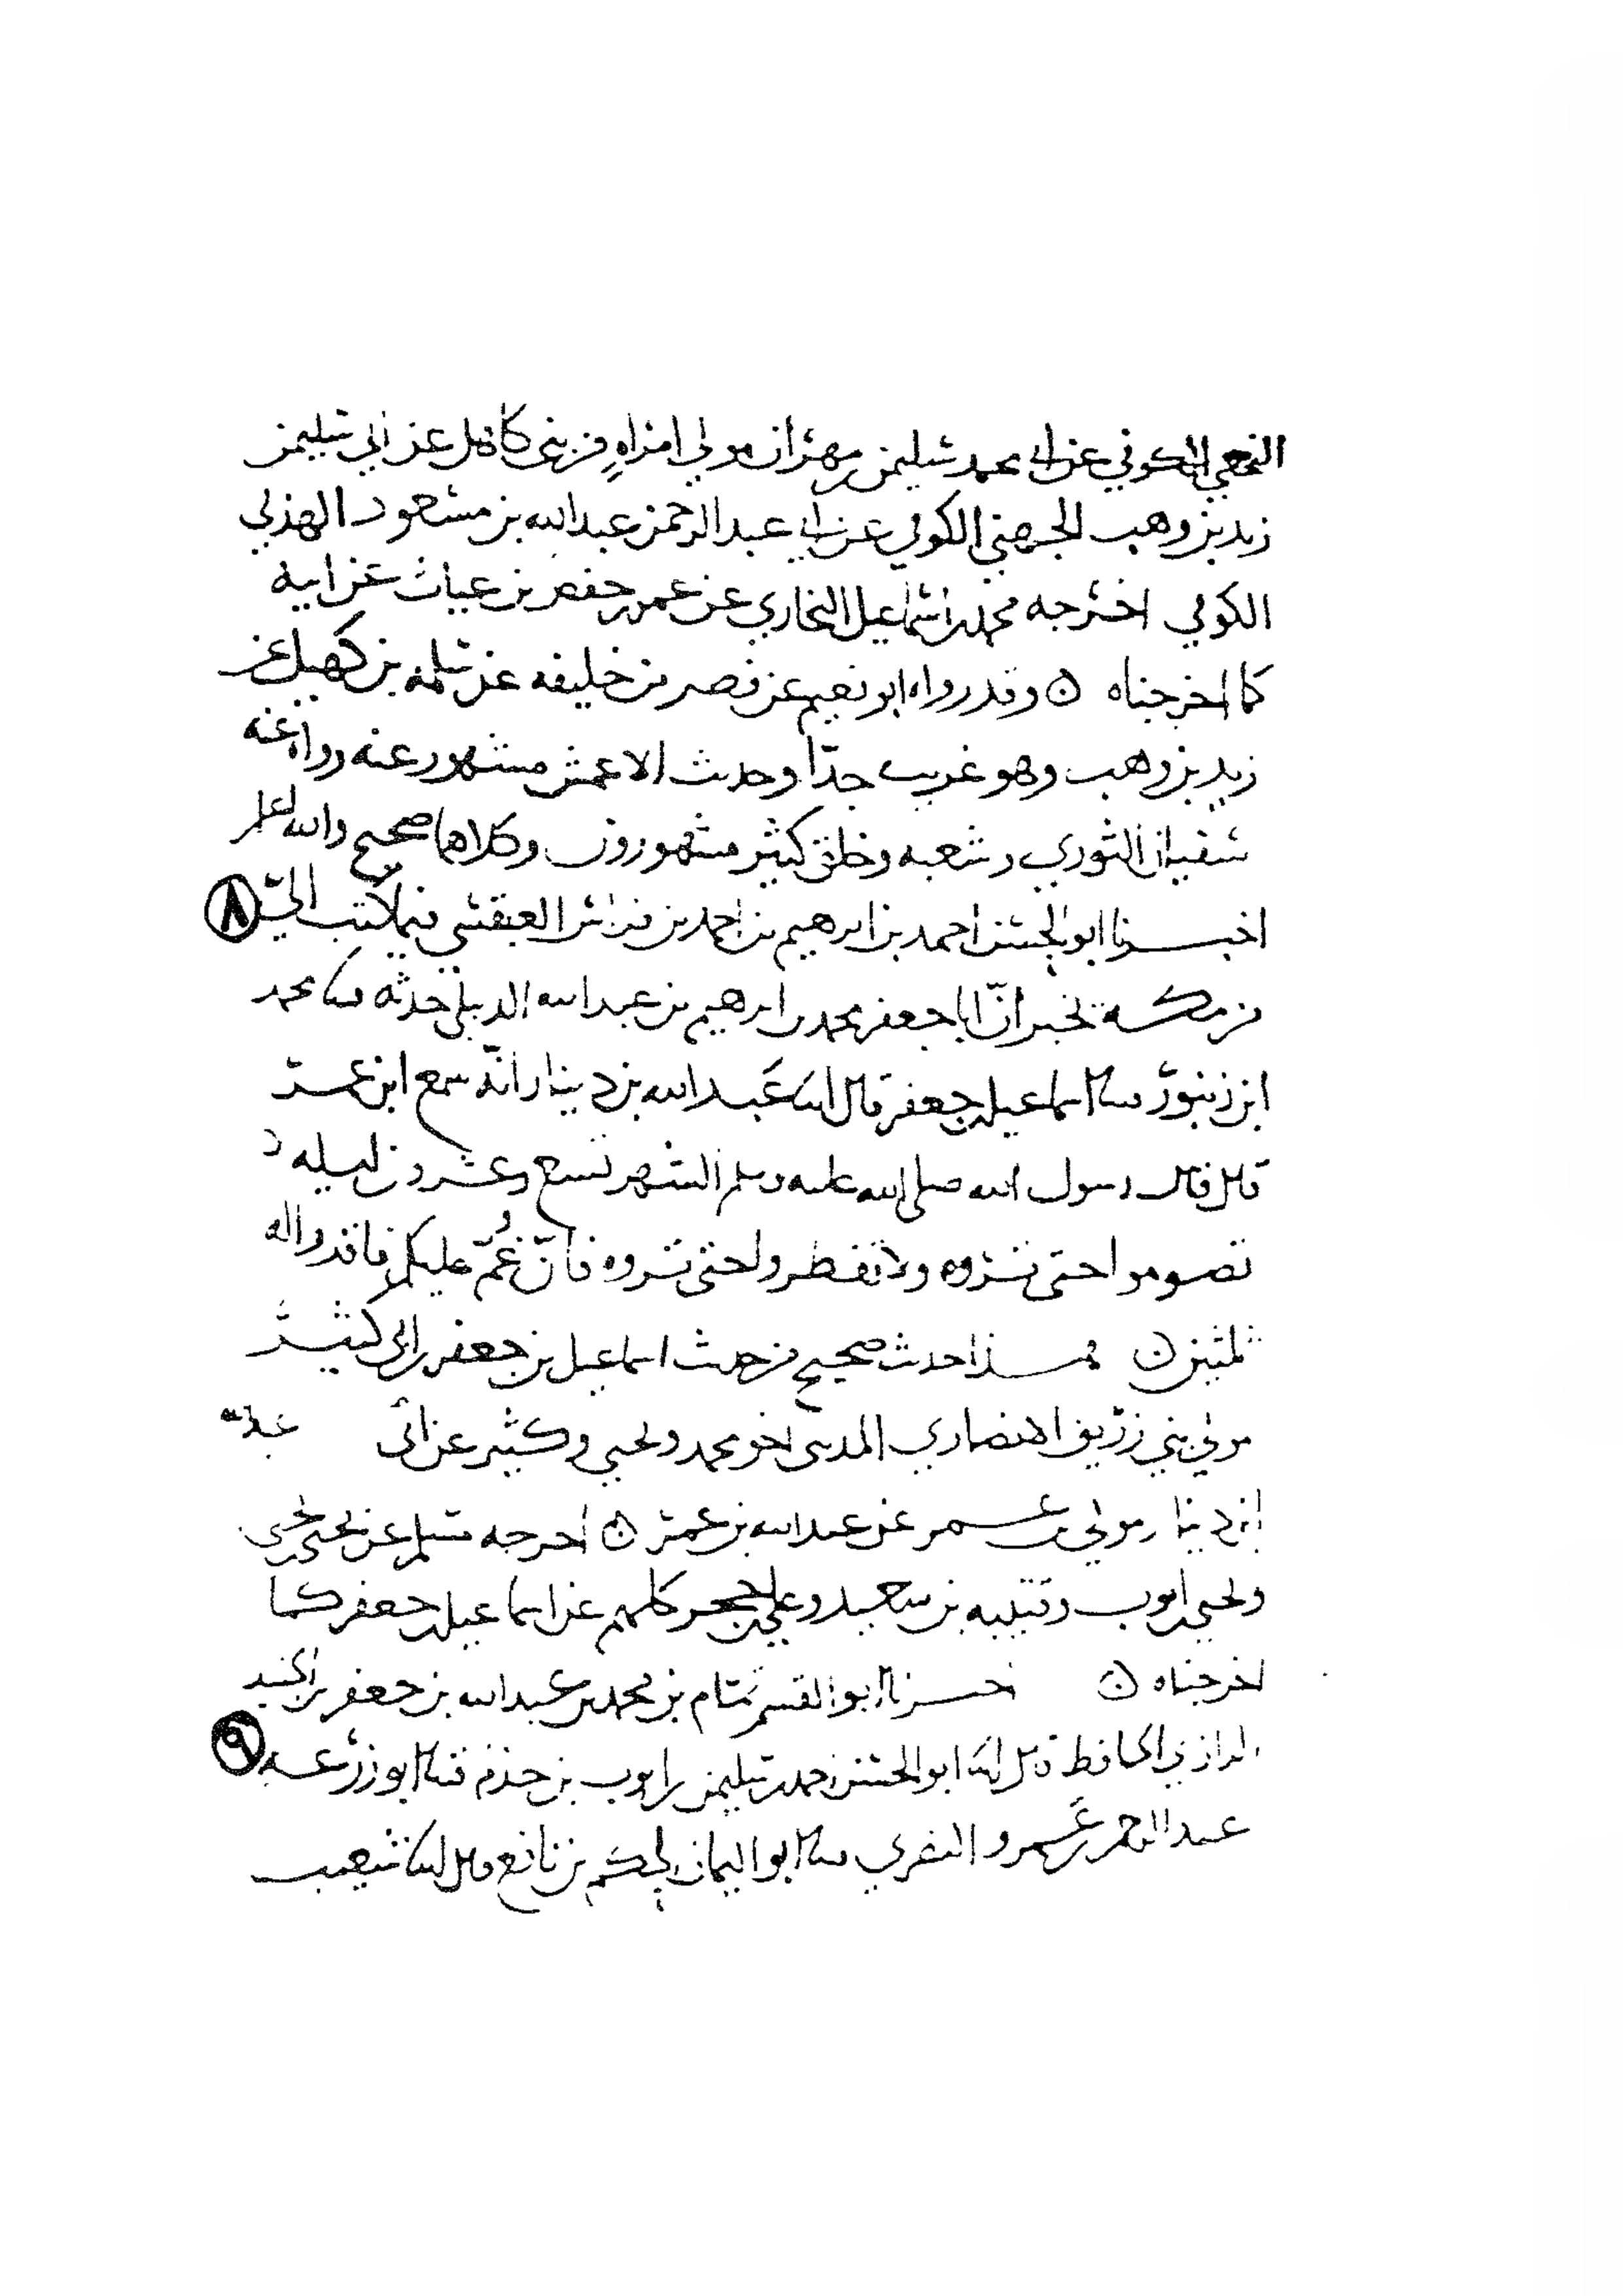 النخعي الكوفي عن ابي محمد سليمن بن مهران مولي امراه من بني كاهل عن ابي سليمن
زيد بن وهب الجهني الكوفي عن ابي عبد الرحمن عبد الله بن مسعود الهذلي
الكوفي اخرجه محمد بن اسماعيل البخاري عن عمر بن حفص بن غياث عن ابيه
كما اخرجناه ن وقد رواه ابو نعيم عن نصر بن خليفه عن سلمة بن كهيل عن
زيد بن وهب وهو غريب جدّا وحديث الاعمش مشهور عنه رواه عنه
سفيان الثوري وشعبه وخلق كثير مشهورون وكلاهما صحيح والله اعلم
اخبرنا ابو الحسن احمد بن ابرهيم بن احمد بن فراس العبقسي فيما كتب اليّ ٨
من مكة يخبر انّ ابا جعفر محمد بن ابرهيم بن عبد الله الديبلي حدثه ثنا محمد
ابن زنبور ثنا اسماعيل بن جعفر قال انا عبد الله بن دينار انّه سمع ابن عمر
قال قال رسول الله صلى الله عليه وسلم الشهر تسع وعشرون ليله لا
تصوموا حتى تروه ولا تفطروا حتى تروه فانّ غُمّ عليكم فاقدروا له
ثلثين ن هذا حديث صحيح من حديث اسماعيل بن جعفر بن ابي كثير
مولي بني زريق الانصاري المدني اخو محمد ويحيي وكثير عن ابي عبد الله
ابن دينار مولى بن عمر عن عبد الله بن عمر ن اخرجه مسلم عن يحيى بن يحيى
ويحيى بن ايوب وقتيبه بن سعيد وعلي بن حجر كلهم عن اسماعيل بن جعفر كما
اخرجناه ن اخبرنا ابو القسم تمّام بن محمد بن عبد الله بن جعفر بن الجنيد
الرازي الحافظ قال انا ابو الحسن احمد بن سليمن بن ايوب بن حذلم ثنا ابو زرعه ٩
عبد الرحمن بن عمرو النصري ثنا ابو اليمان الحكم بن نافع قال انا شعيب